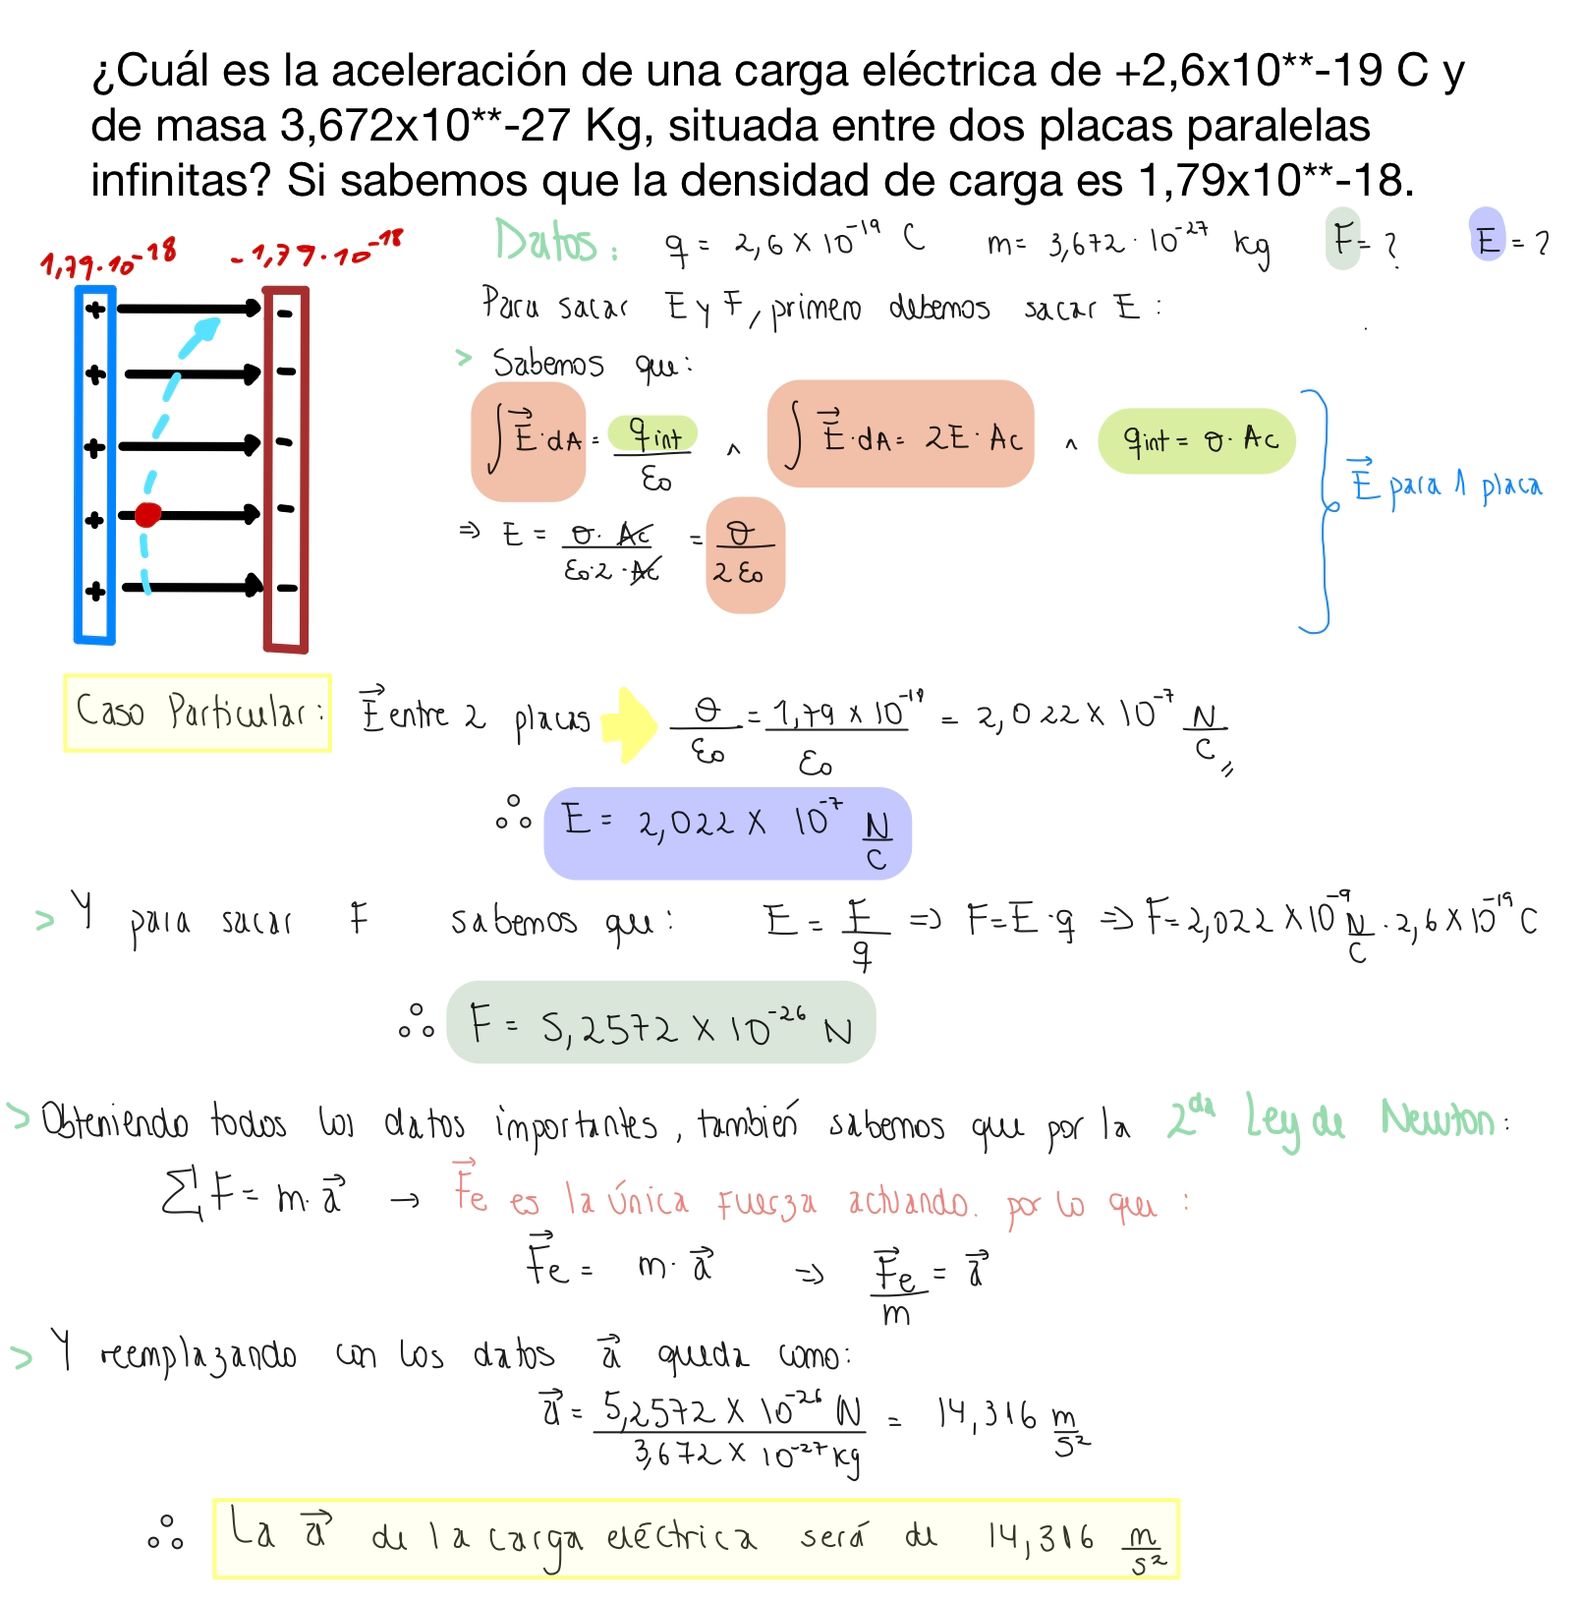 ¿Cuál es la aceleración de una carga eléctrica de +2,6x10**-19 C y
de masa 3,672x10**-27 Kg, situada entre dos placas paralelas
infinitas? Si sabemos que la densidad de carga es 1,79x10**-18.
1,79·10⁻¹⁸ -1,79·10⁻¹⁸
+ -
+ -
+ -
+ -
+ -
Datos: q = 2,6 × 10⁻¹⁹ C m = 3,672 · 10⁻²⁷ kg F = ? E = ?
Para sacar E y F, primero debemos sacar E :
> Sabemos que:
∫E⃗·dA = qint/ε₀ ^ ∫E⃗·dA = 2E·Ac ^ qint = σ·Ac
⇒ E = σ·Ac/ε₀·2·Ac = σ/2ε₀
E⃗ para 1 placa
Caso Particular: E⃗ entre 2 placas σ/ε₀ = 1,79 × 10⁻¹⁸/ε₀ = 2,022 × 10⁻⁷ N/C,,
∴ E = 2,022 × 10⁻⁷ N/C
> Y para sacar F sabemos que: E = F/q ⇒ F = E·q ⇒ F = 2,022 × 10⁻⁹ N/C · 2,6 × 10⁻¹⁹ C
∴ F = 5,2572 × 10⁻²⁶ N
> Obteniendo todos los datos importantes, también sabemos que por la 2da Ley de Newton:
∑F = m·a⃗ → F⃗e es la única fuerza actuando. por lo que :
F⃗e = m·a⃗ ⇒ F⃗e/m = a⃗
> Y reemplazando con los datos a⃗ queda como:
a⃗ = 5,2572 × 10⁻²⁶ N/3,672 × 10⁻²⁷ kg = 14,316 m/s²
∴ La a⃗ de la carga eléctrica será de 14,316 m/s²